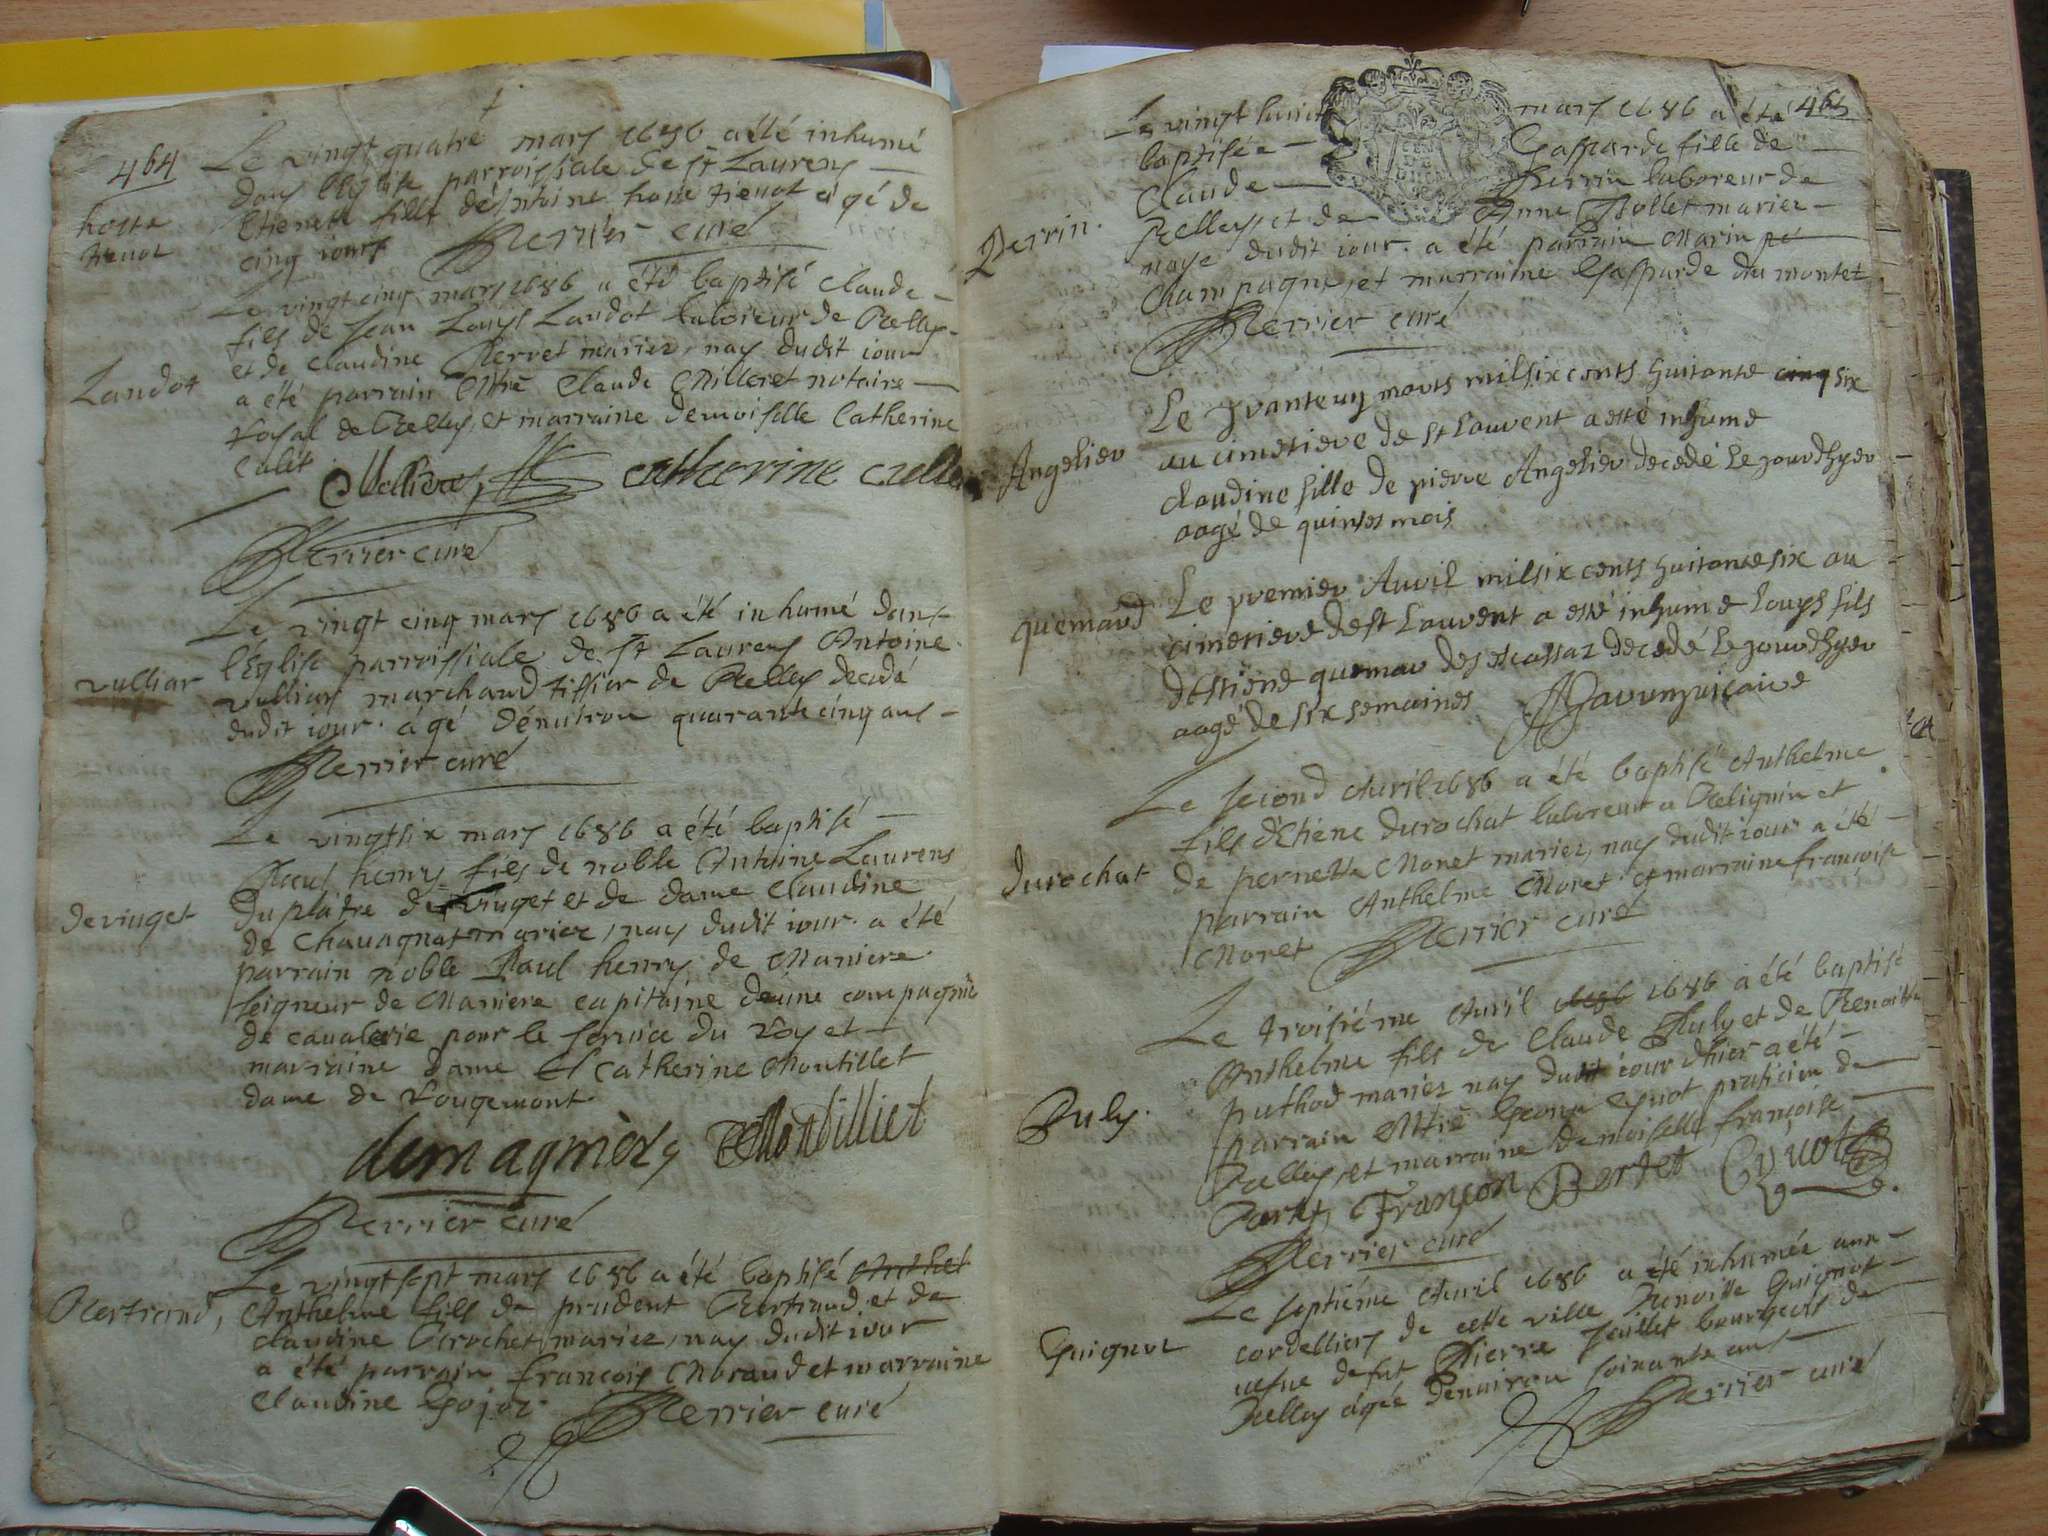 464
Le vingt quatre mars 1686 a été inhumé
dans l'Eglise parroissiale de st Laurens
Etienette fille d'Antoine hoste tienot agé de
cinq jours Perrier curé
hoste
tienot
Le vingt cinq mars 1686 a été baptisé Claude
fils de Jean Louys Landot laboreur de Belley
et de Claudine Pervet mariez, nay dudit jour
a été parrain Mtre Claude Milleret notaire
Royal de Belley, et marraine demoiselle Catherine
Cullet
Landot
Catherine
Perrier curé
Le vingt cinq mars 1686 a été inhumé dans
l'Eglise parroissiale de st Laurens Antoine
vulliar marchand tissier de Belley decedé
dudit jour. agé d'environ quarante cinq ans
Perrier curé
vulliar
Le vingtsix mars 1686 a été baptisé
Paul henry fils de noble Antoine Laurens
du plaitre de vuget et de dame Claudine
de Chavagnat mariez, nay dudit jour. a été
parrain noble Paul henry de Maniere
seigneur de Maniere capitaine d'une compagnie
de cavalerie pour le service du Roy et
marraine dame Catherine Montillet
dame de Rougemont
devuget
Montilliet
Perrier curé
Le vingtsept mars 1686 a été baptisé Anthel
Anthelme fils de prudent Bertrand et de
claudine Brochet mariez, nay dudit jour
a été parrain françois Morand et marraine
Claudine Gojoz Perrier curé
Bertrand,
465
Le vingt huict mars 1686 a été
baptisée Gasparde fille de
Claude Perrin laboreur de
Belley et de Anne Bollet mariez
naye dudit jour. a été parrain Marin
Champagne, et marraine Gasparde du montet
Perrier curé
Perrin.
Le tranteuy mars milsix cents huitante cinq six
au cimetiere de st Laurent a esté inhume
claudine fille de pierre Angelier decedé le jourdhyer
aagé de quinses mois
Angelier
Le premier Auvil milsix cents huitante six au
cimetiere de st Laurent a esté inhume Louys fils
destiene quemar des decedé le jourdhyer
aagé de six semaines vicaire
quemard
Le second Avril 1686 a été baptisé Anthelme
fils d'Etiene durochat laboreur a Belignin et
de pernette Moret mariez, nay dudit jour a été
parrain Anthelme Moret et marraine françoise
Moret Perrier curé
durochat
Le troisiéme Avril 1686 1686 a été baptisé
Anthelme fils de Claude Puly et de Benoitte
puthod mariez nay dudit jour d'hier a été
parrain Mtre Guiot praticien de
Belley, et marraine demoiselle françoise
Françon Bertet Guiot
Perrier curé
Puly.
Le septiéme Avril 1686 a été inhumée aux
cordelliers de cette ville Benoitte Guignot
vefve de fut Pierre bourgeois de
Belley agée d'environ soixante ans
Perrier curé
Guignot